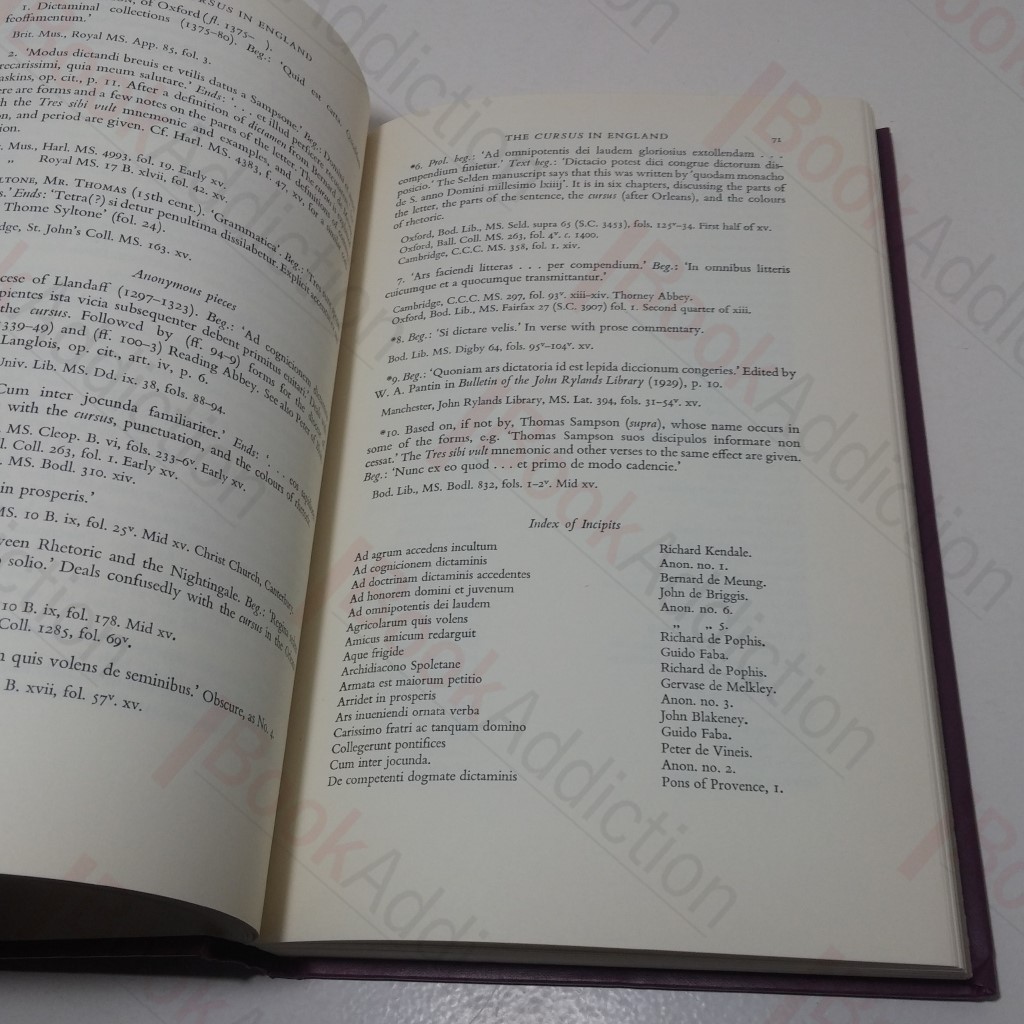 CURSUS IN ENGLAND
of Oxford (fl. 1375– ).
1. Dictaminal collections (1375–80). Beg.: 'Quid est carta
feoffamentum.'
Brit. Mus., Royal MS. App. 85, fol. 3.
2. 'Modus dictandi breuis et vtilis datus a Sampsone.' Beg.:
precarissimi, quia meum salutare.' Ends: '. . . et illud perficere
op. cit., p. 11. After a definition of dictamen from
are forms and a few notes on the parts of the letter. The
the Tres sibi vult mnemonic and examples, and definitions of
and period are given. Cf. Harl. MS. 4383, f. 47. xv, for
Mus., Harl. MS. 4993, fol. 19. Early xv.
„ Royal MS. 17 B. xlvii, fol. 42. xv.
MR. THOMAS (15th cent.). 'Grammatica'. Beg.:
Ends: 'Tetra(?) si detur penultima dissilabetur. Explicit
Thome Syltone' (fol. 24).
St. John's Coll. MS. 163. xv.
Anonymous pieces
of Llandaff (1297–1323). Beg.: 'Ad cognicionem
ista vicia subsequenter debent primitus euitari.'
the cursus. Followed by (ff. 94–9) forms for the
and (ff. 100–3) Reading Abbey. See also
Langlois, op. cit., art. iv, p. 6.
Univ. Lib. MS. Dd. ix. 38, fols. 88–94.
Cum inter jocunda familiariter.' Ends: '. . .
with the cursus, punctuation, and the colours of rhetoric
MS. Cleop. B. vi, fols. 233–6v. Early xv.
Coll. 263, fol. 1. Early xv.
MS. Bodl. 310. xiv.
in prosperis.'
MS. 10 B. ix, fol. 25v. Mid xv. Christ Church, Canterbury.
Rhetoric and the Nightingale. Beg.: 'Regina
solio.' Deals confusedly with the cursus in the
10 B. ix, fol. 178. Mid xv.
Coll. 1285, fol. 69v.
quis volens de seminibus.' Obscure, as No. 4
B. xvii, fol. 57v. xv.
THE CURSUS IN ENGLAND 71
*6. Prol. beg.: 'Ad omnipotentis dei laudem gloriosius extollendam . . .
compendium finietur.' Text beg.: 'Dictacio potest dici congrue dictorum dis-
posicio.' The Selden manuscript says that this was written by 'quodam monacho
de S. anno Domini millesimo lxiiij'. It is in six chapters, discussing the parts of
the letter, the parts of the sentence, the cursus (after Orleans), and the colours
of rhetoric.
Oxford, Bod. Lib., MS. Seld. supra 65 (S.C. 3453), fols. 125v–34. First half of xv.
Oxford, Ball. Coll. MS. 263, fol. 4v. c. 1400.
Cambridge, C.C.C. MS. 358, fol. 1. xiv.
7. 'Ars faciendi litteras . . . per compendium.' Beg.: 'In omnibus litteris
cuicumque et a quocumque transmittantur.'
Cambridge, C.C.C. MS. 297, fol. 93v. xiii–xiv. Thorney Abbey.
Oxford, Bod. Lib., MS. Fairfax 27 (S.C. 3907) fol. 1. Second quarter of xiii.
*8. Beg.: 'Si dictare velis.' In verse with prose commentary.
Bod. Lib. MS. Digby 64, fols. 95v–104v. xv.
*9. Beg.: 'Quoniam ars dictatoria id est lepida diccionum congeries.' Edited by
W. A. Pantin in Bulletin of the John Rylands Library (1929), p. 10.
Manchester, John Rylands Library, MS. Lat. 394, fols. 31–54v. xv.
*10. Based on, if not by, Thomas Sampson (supra), whose name occurs in
some of the forms, e.g. 'Thomas Sampson suos discipulos informare non
cessat.' The Tres sibi vult mnemonic and other verses to the same effect are given.
Beg.: 'Nunc ex eo quod . . . et primo de modo cadencie.'
Bod. Lib., MS. Bodl. 832, fols. 1–2v. Mid xv.
Index of Incipits
Ad agrum accedens incultum Richard Kendale.
Ad cognicionem dictaminis Anon. no. 1.
Ad doctrinam dictaminis accedentes Bernard de Meung.
Ad honorem domini et juvenum John de Briggis.
Ad omnipotentis dei laudem Anon. no. 6.
Agricolarum quis volens „ „ 5.
Amicus amicum redarguit Richard de Pophis.
Aque frigide Guido Faba.
Archidiacono Spoletane Richard de Pophis.
Armata est maiorum petitio Gervase de Melkley.
Arridet in prosperis Anon. no. 3.
Ars inueniendi ornata verba John Blakeney.
Carissimo fratri ac tanquam domino Guido Faba.
Collegerunt pontifices Peter de Vineis.
Cum inter jocunda. Anon. no. 2.
De competenti dogmate dictaminis Pons of Provence, 1.